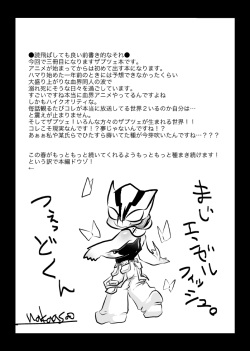 ●読飛ばしても良い前書き的なそれ●
今回で三冊目になりますザプツェ本です。
アニメが始まってからは初めて出す本になります。
ハマり始めた一年前のときには予想できなかったくらい
大盛り上がりな血界同人の波で
溺れ死にそうな日々を過ごしています。
すごいですね本当に血界アニメやってるんですよね
しかもハイクオリティな。
怪盗観るたびコレが本当に放送してる世界２いるのか自分は…
と震えが止まりません。
そしてザプツェ！いろんな方々のザプツェが生まれる世界！！
コレこそ現実なんですか？事実なんですか！？
あぁぁ私や某氏らでひたすら種蒔いてた種が今芽吹いたんですね…？？？
この春がもっともっと続いてくれるようもっともっと種まき続けます！
という訳で本編ドウゾ！
←
まじエンゼルフィッシュ。
つぇっどくん